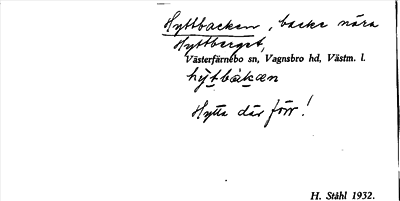 Hyttbacken, backe nära
Hyttberget,
Västerfärnebo sn, Vagnsbro hd, Västm. l.
hỳtbàkæn
Hytta där förr!
H. Ståhl 1932.